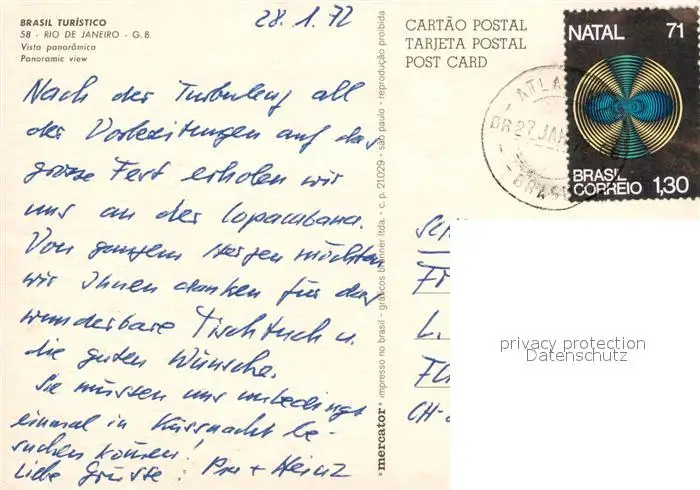 BRASIL TURÍSTICO
58 - RIO DE JANEIRO - G.B.
Vista panorâmica
Panoramic view
28.1.72
Nach der Turbulenz all
der Vorbereitungen auf das
grosse Fest erholen wir
uns an der Copacabana.
Von ganzem Herzen möchten
wir Ihnen danken für das
wunderbare Tischtuch u.
die guten Wünsche.
Sie müssen uns unbedingt
einmal in Küssnacht be-
suchen kommen!
Liebe Grüsse: + Heinz
mercator impresso no brasil - gráficos brunner ltda. - c.p. 21.029 - são paulo - reprodução proibida
CARTÃO POSTAL
TARJETA POSTAL
POST CARD
NATAL 71
BRASIL
CORREIO 1,30
BR 27 JAN
BRAS
L.
CH-
privacy protection
Datenschutz